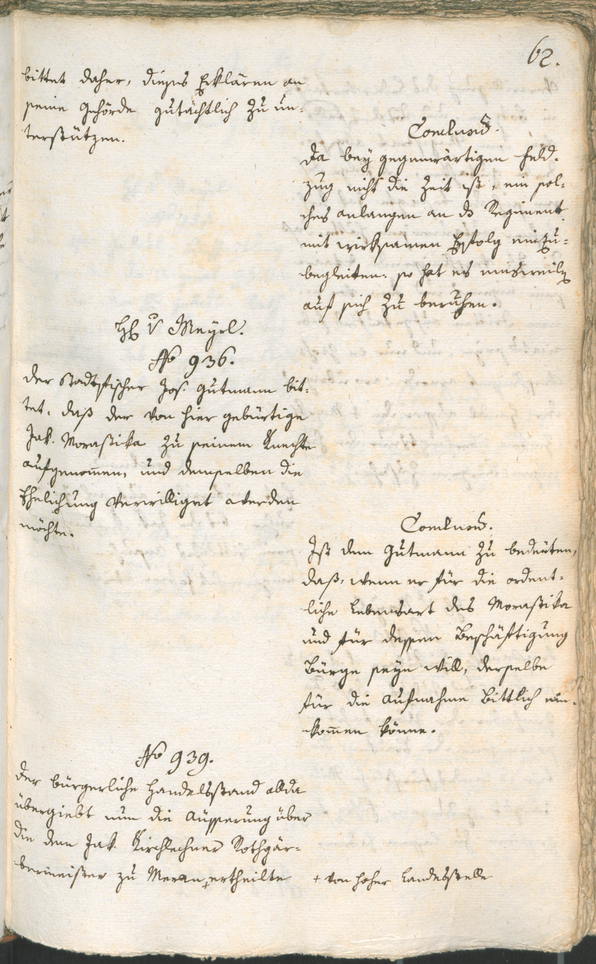 62.
bittet daher, dieses Erklären an
seine Behörde gutächtlich zu un-
terstützen.
Conclusum.
Da bey gegenwärtigen Feld-
zug nicht die Zeit ist, ein sol-
ches anlangen an ds Regiment
mit wirksamen Erfolg einzu-
begleiten: so hat es einsweilen
auf sich zu beruhen.
H v Mayrl.
No 936.
Der Stadtfischer Jos. Gutmann bit-
tet, daß der von hier gebürtige
Jak. Morastika zu seinem Knechte
aufgenommen, und demselben die
Ehelichung verwilliget werden
möchte.
Conclusum.
Ist dem Gutmann zu bedeuten,
daß, wenn er für die ordent-
liche Lebensart des Morastika
und für dessen Beschäftigung
Bürge seyn will, derselbe
für die Aufnahme bittlich ein-
kommen könne.
No 939.
Der bürgerliche Handelsstand allda
übergiebt nun die Äusserung über
die dem Jak. Kirchlechner Rothgär-
bermeister zu Meran + ertheilte
+ von hoher Landesstelle